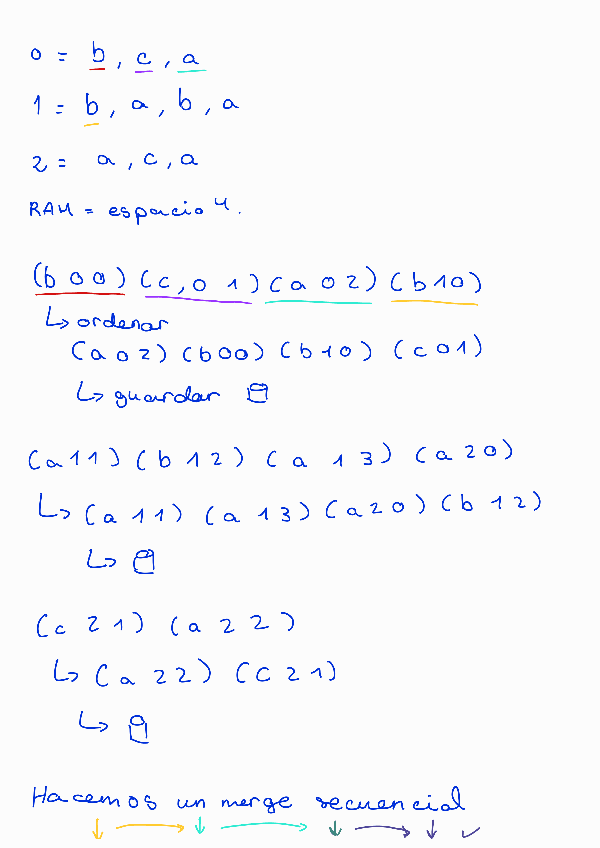 0 = b, c, a
1 = b, a, b, a
2 = a, c, a
RAM = espacio 4.
(b 0 0) (c, 0 1) (a 0 2) (b 1 0)
↳ ordenar
(a 0 2) (b 0 0) (b 1 0) (c 0 1)
↳ guardar
(a 1 1) (b 1 2) (a 1 3) (a 2 0)
↳ (a 1 1) (a 1 3) (a 2 0) (b 1 2)
↳
(c 2 1) (a 2 2)
↳ (a 2 2) (c 2 1)
↳
Hacemos un merge secuencial
↓ → ↓ → ↓ → ↓ ✓